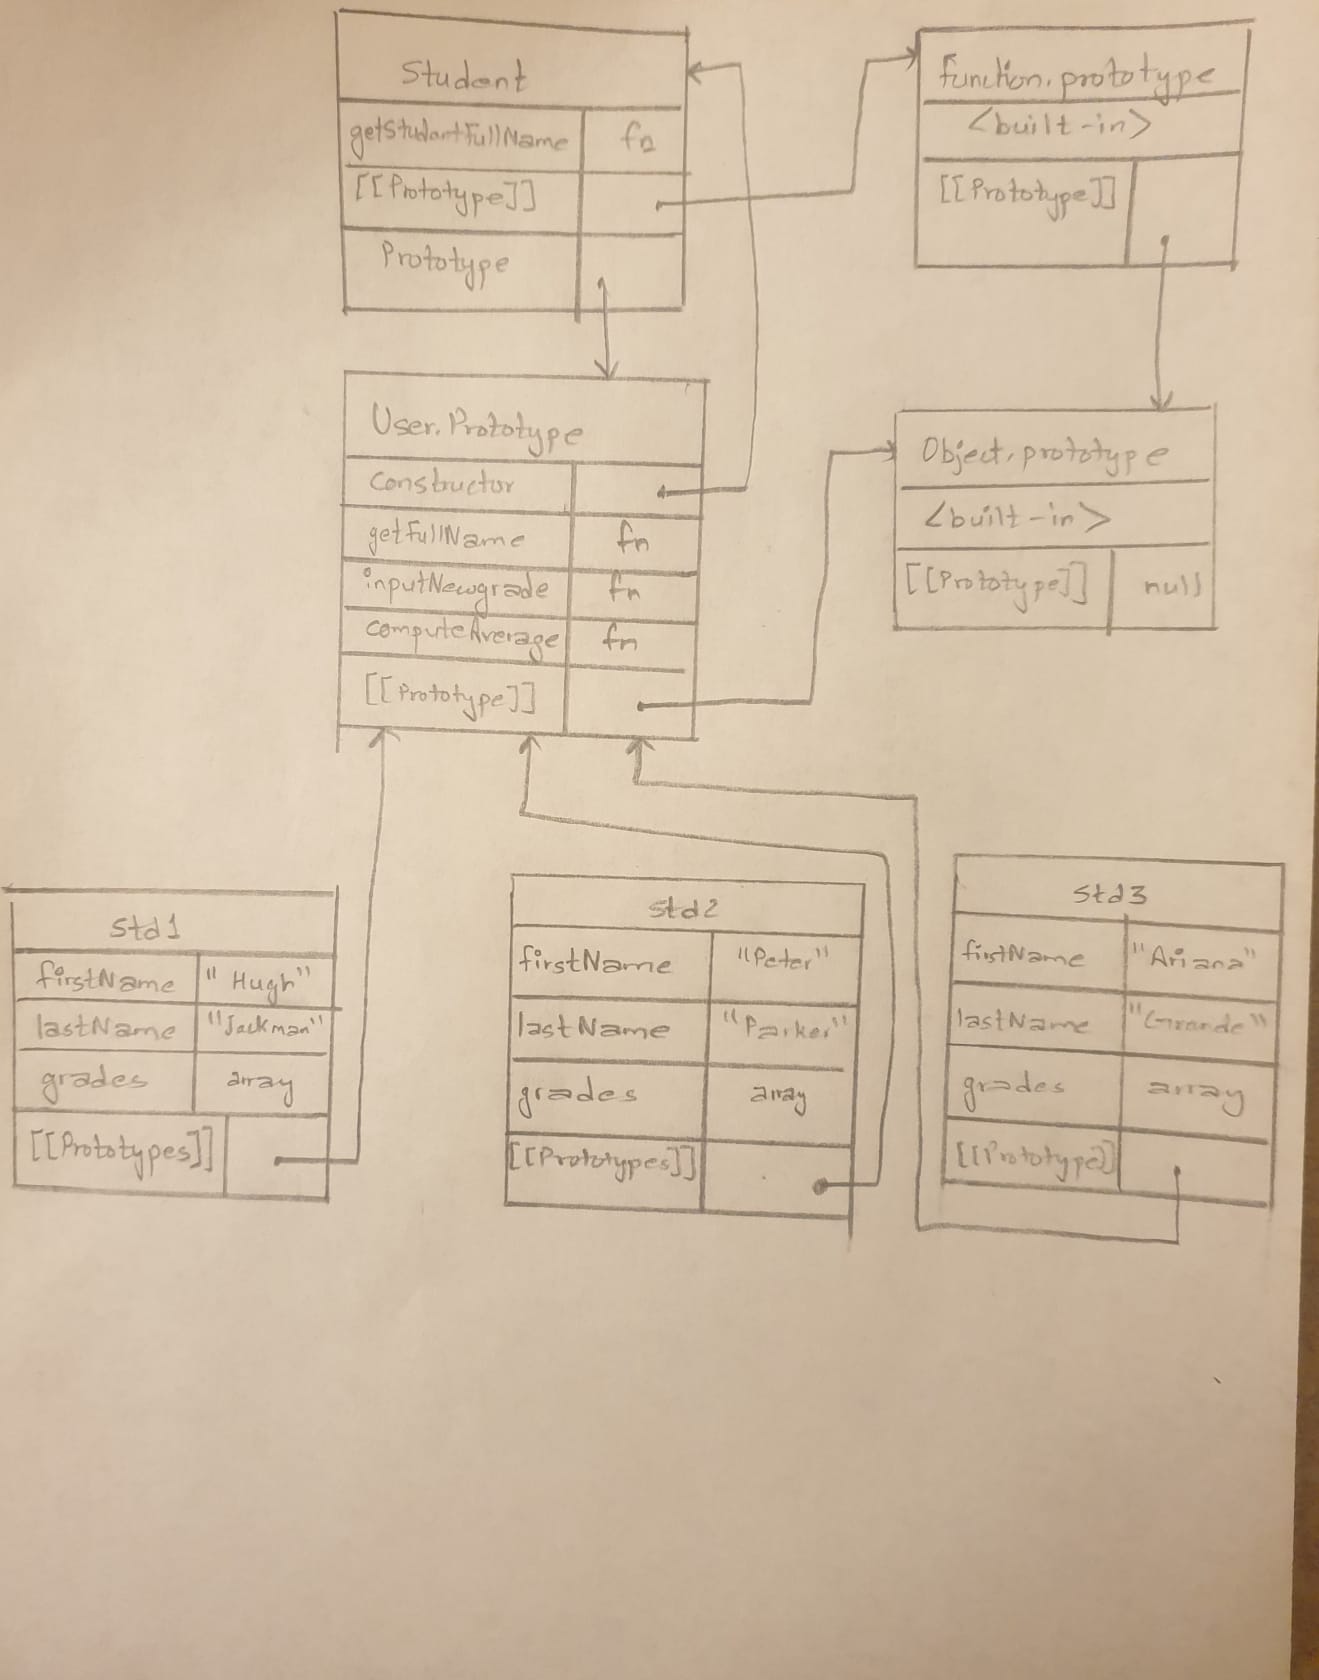 Student
getStudentFullName fn
[[Prototype]]
Prototype
function.prototype
<built-in>
[[Prototype]]
User.Prototype
Constructor
getFullName fn
inputNewgrade fn
computeAverage fn
[[Prototype]]
Object.prototype
<built-in>
[[Prototype]] null
std1
firstName "Hugh"
lastName "Jackman"
grades array
[[Prototypes]]
std2
firstName "Peter"
lastName "Parker"
grades array
[[Prototypes]]
std3
firstName "Ariana"
lastName "Grande"
grades array
[[Prototype]]